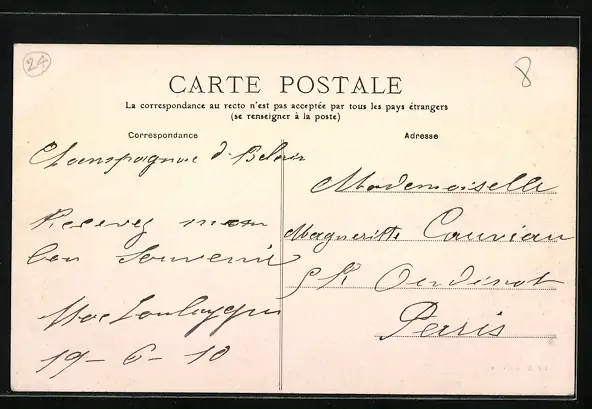 24
8
CARTE POSTALE
La correspondance au recto n'est pas acceptée par tous les pays étrangers
(se renseigner à la poste)
Correspondance
Adresse
Champagnac d. Belair
Recevez mon
bon Souvenir
19-6-10
Mademoiselle
Margueritte Cauvian
Oudinot
Paris